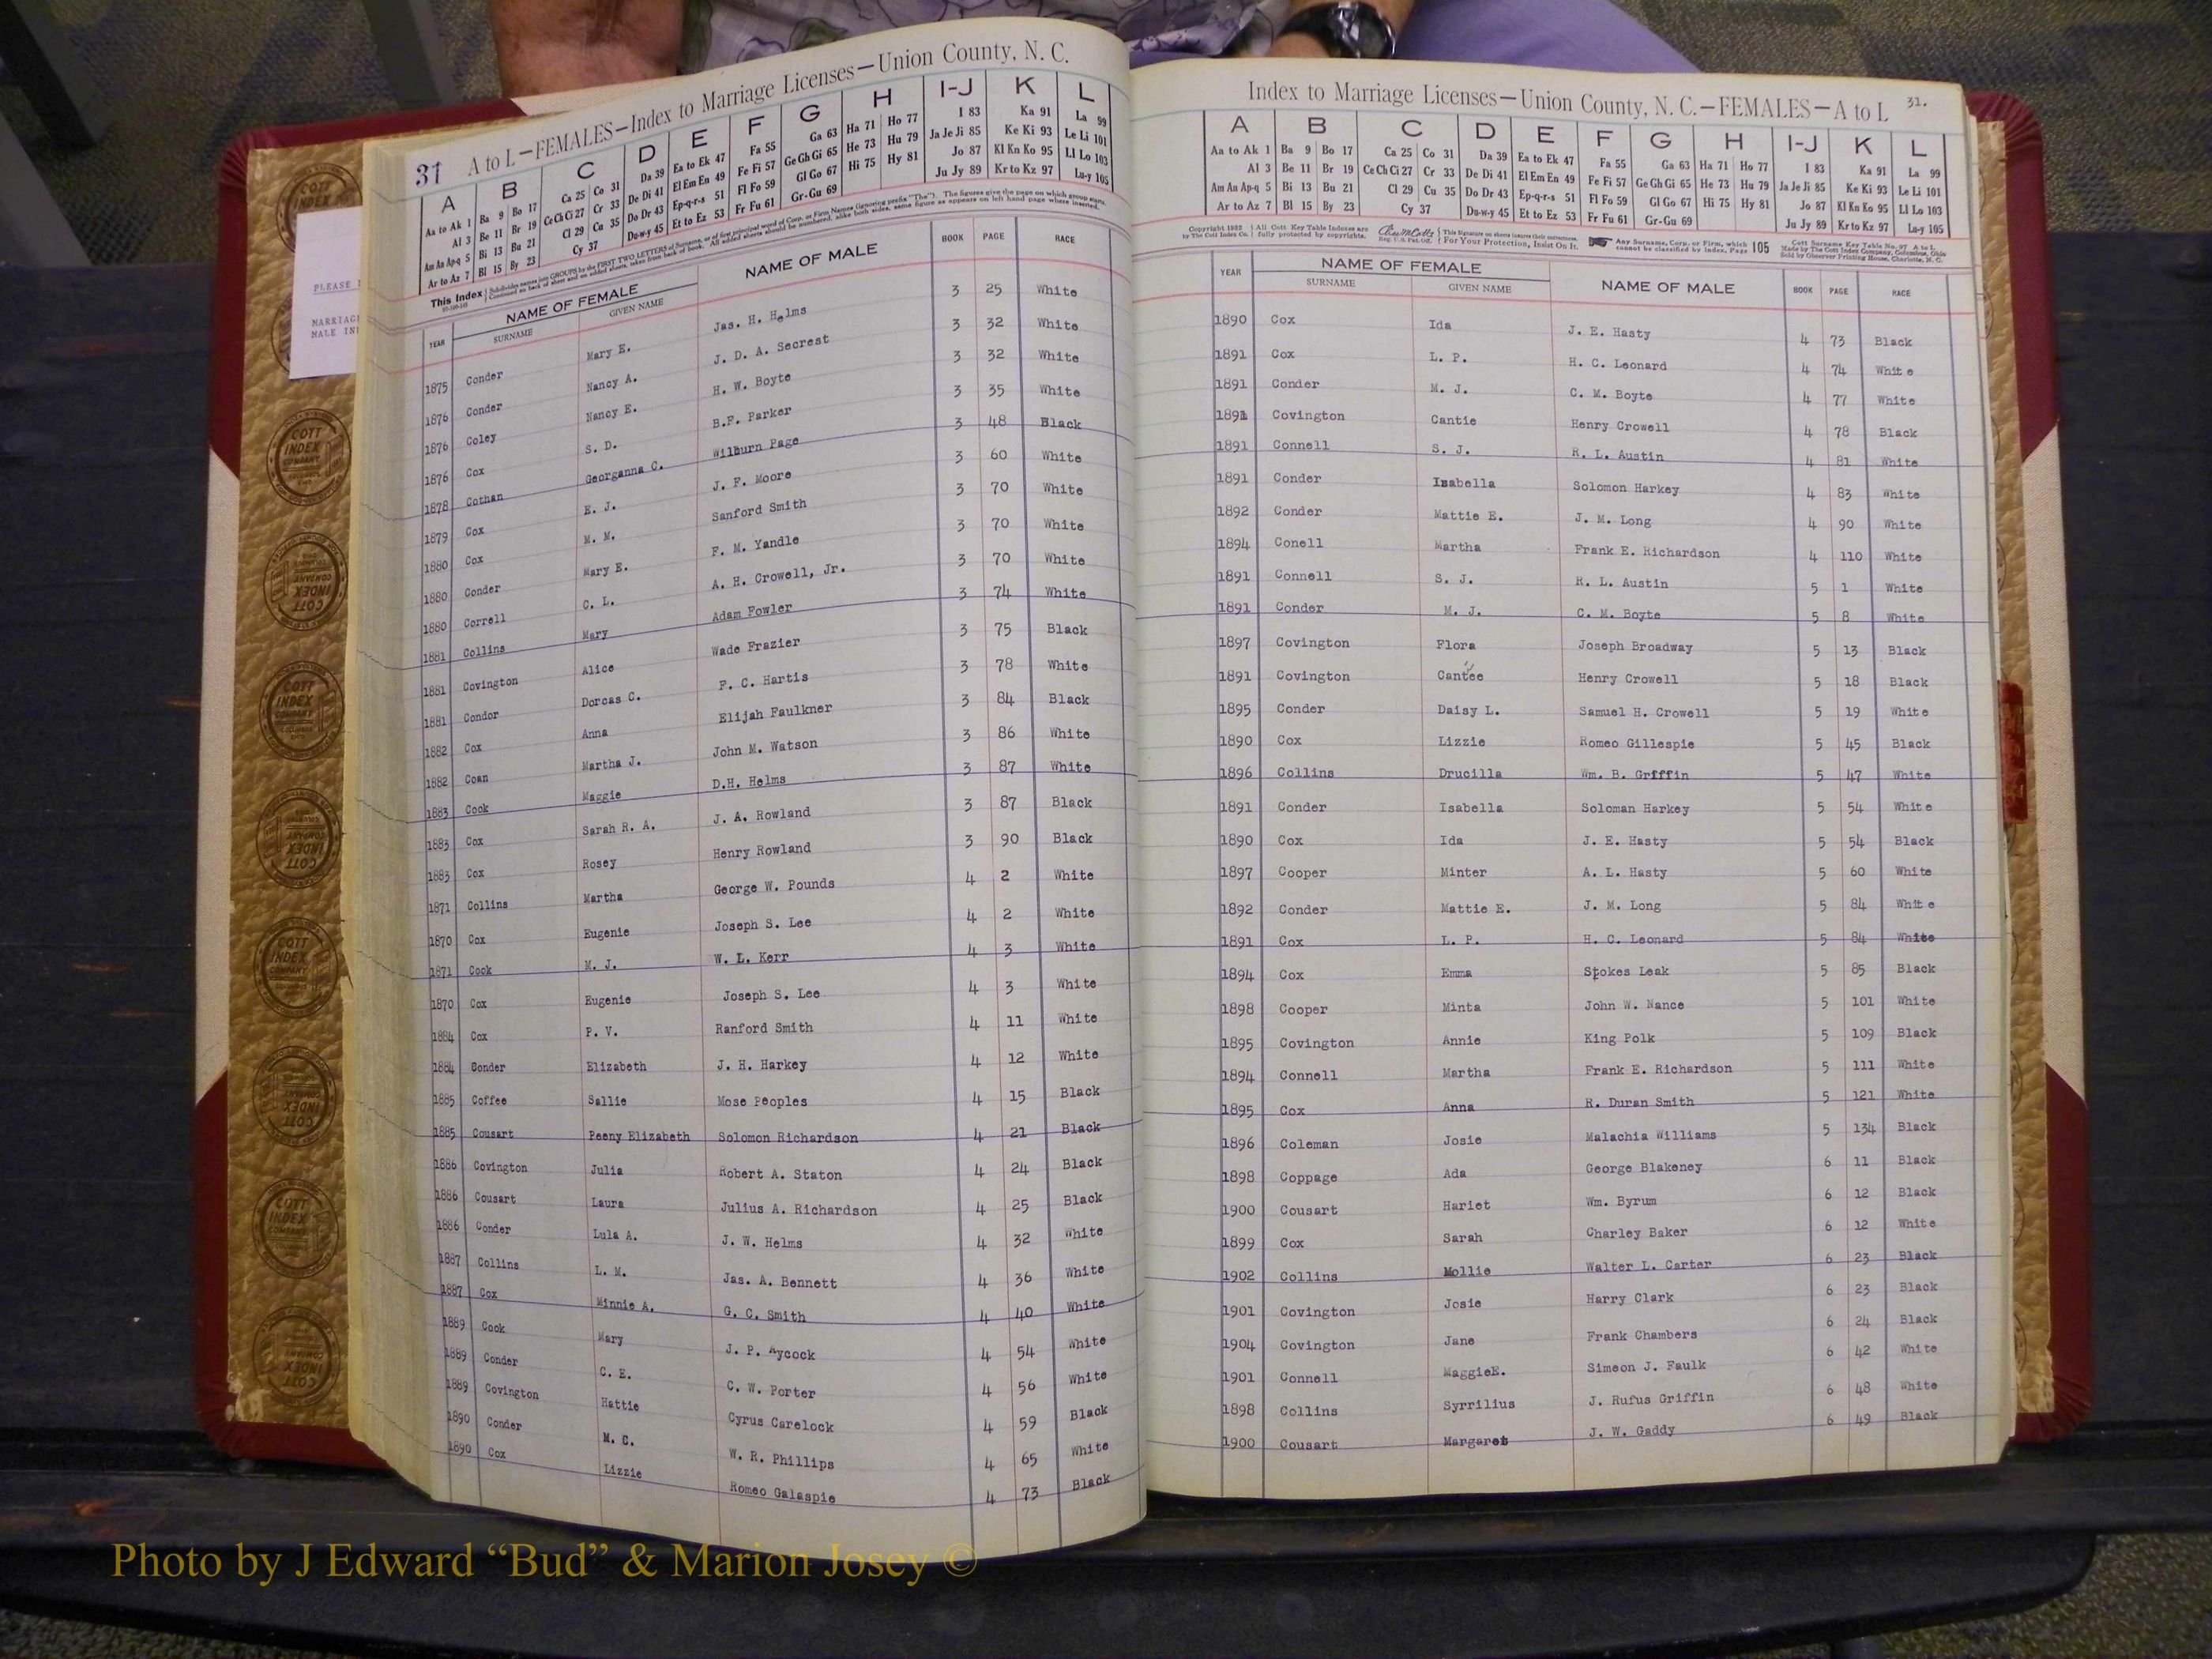 31 A to L—FEMALES—Index to Marriage Licenses—Union County, N. C.
A B C D E F G H I-J K L
Aa to Ak 1 Ba 9 Bo 17 Ca 25 Co 31 Da 39 Ea to Ek 47 Fa 55 Ga 63 Ha 71 Ho 77 I 83 Ka 91 La 99
Al 3 Be 11 Br 19 Ce Ch Ci 27 Cr 33 De Di 41 El Em En 49 Fe Fi 57 Ge Gh Gi 65 He 73 Hu 79 Ja Je Ji 85 Ke Ki 93 Le Li 101
Am An Ap-q 5 Bi 13 Bu 21 Cl 29 Cu 35 Do Dr 43 Ep-q-r-s 51 Fl Fo 59 Gl Go 67 Hi 75 Hy 81 Jo 87 Kl Kn Ko 95 Ll Lo 103
Ar to Az 7 Bl 15 By 23 Cy 37 Du-w-y 45 Et to Ez 53 Fr Fu 61 Gr-Gu 69 Ju Jy 89 Kr to Kz 97 Lu-y 105
This Index Subdivides names into GROUPS by the FIRST TWO LETTERS of Surname, or of first principal word of Corp. or Firm Names (Ignoring prefix "The"). The figures give the page on which group starts.
Continued on back of sheet and on added sheets, taken from back of book. All added sheets should be numbered, alike both sides, same figure as appears on left hand page where inserted.
YEAR NAME OF FEMALE NAME OF MALE BOOK PAGE RACE
SURNAME GIVEN NAME
1875 Conder Mary E. Jas. H. Helms 3 25 White
1876 Conder Nancy A. J. D. A. Secrest 3 32 White
1876 Coley Nancy E. H. W. Boyte 3 32 White
1876 Cox S. D. B.F. Parker 3 35 White
1878 Cothan Georganna C. Wilburn Page 3 48 Black
1879 Cox E. J. J. F. Moore 3 60 White
1880 Cox M. M. Sanford Smith 3 70 White
1880 Conder Mary E. F. M. Yandle 3 70 White
1880 Correll C. L. A. H. Crowell, Jr. 3 70 White
1881 Collins Mary Adam Fowler 3 74 White
1881 Covington Alice Wade Frazier 3 75 Black
1881 Condor Dorcas C. F. C. Hartis 3 78 White
1882 Cox Anna Elijah Faulkner 3 84 Black
1882 Coan Martha J. John M. Watson 3 86 White
1883 Cook Maggie D.H. Helms 3 87 White
1883 Cox Sarah R. A. J. A. Rowland 3 87 Black
1883 Cox Rosey Henry Rowland 3 90 Black
1871 Collins Martha George W. Pounds 4 2 White
1870 Cox Eugenie Joseph S. Lee 4 2 White
1871 Cook M. J. W. L. Kerr 4 3 White
1870 Cox Eugenie Joseph S. Lee 4 3 White
1884 Cox P. V. Ranford Smith 4 11 White
1884 Conder Elizabeth J. H. Harkey 4 12 White
1885 Coffee Sallie Mose Peoples 4 15 Black
1885 Cousart Peeny Elizabeth Solomon Richardson 4 21 Black
1886 Covington Julia Robert A. Staton 4 24 Black
1886 Cousart Laura Julius A. Richardson 4 25 Black
1886 Conder Lula A. J. W. Helms 4 32 White
1887 Collins L. M. Jas. A. Bennett 4 36 White
1887 Cox Minnie A. G. C. Smith 4 40 White
1889 Cook Mary J. P. Aycock 4 54 White
1889 Conder C. E. C. W. Porter 4 56 White
1889 Covington Hattie Cyrus Carelock 4 59 Black
1890 Conder M. C. W. R. Phillips 4 65 White
1890 Cox Lizzie Romeo Galaspie 4 73 Black
Index to Marriage Licenses—Union County, N. C.—FEMALES—A to L 31.
A B C D E F G H I-J K L
Aa to Ak 1 Ba 9 Bo 17 Ca 25 Co 31 Da 39 Ea to Ek 47 Fa 55 Ga 63 Ha 71 Ho 77 I 83 Ka 91 La 99
Al 3 Be 11 Br 19 Ce Ch Ci 27 Cr 33 De Di 41 El Em En 49 Fe Fi 57 Ge Gh Gi 65 He 73 Hu 79 Ja Je Ji 85 Ke Ki 93 Le Li 101
Am An Ap-q 5 Bi 13 Bu 21 Cl 29 Cu 35 Do Dr 43 Ep-q-r-s 51 Fl Fo 59 Gl Go 67 Hi 75 Hy 81 Jo 87 Kl Kn Ko 95 Ll Lo 103
Ar to Az 7 Bl 15 By 23 Cy 37 Du-w-y 45 Et to Ez 53 Fr Fu 61 Gr-Gu 69 Ju Jy 89 Kr to Kz 97 Lu-y 105
Copyright 1932 by The Cott Index Co. All Cott Key Table Indexes are fully protected by copyrights. Reg. U.S. Pat. Off. This signature on sheets insures their correctness. For Your Protection, Insist On It. Any Surname, Corp. or Firm, which cannot be classified by Index, Page 105 Cott Surname Key Table No. 97 A to L Made by The Cott Index Company, Columbus, Ohio Sold by Observer Printing House, Charlotte, N. C.
YEAR NAME OF FEMALE NAME OF MALE BOOK PAGE RACE
SURNAME GIVEN NAME
1890 Cox Ida J. E. Hasty 4 73 Black
1891 Cox L. P. H. C. Leonard 4 74 White
1891 Conder M. J. C. M. Boyte 4 77 White
1891 Covington Cantie Henry Crowell 4 78 Black
1891 Connell S. J. R. L. Austin 4 81 White
1891 Conder Isabella Solomon Harkey 4 83 White
1892 Conder Mattie E. J. M. Long 4 90 White
1894 Conell Martha Frank E. Richardson 4 110 White
1891 Connell S. J. R. L. Austin 5 1 White
1891 Conder M. J. C. M. Boyte 5 8 White
1897 Covington Flora Joseph Broadway 5 13 Black
1891 Covington Cantee Henry Crowell 5 18 Black
1895 Conder Daisy L. Samuel H. Crowell 5 19 White
1890 Cox Lizzie Romeo Gillespie 5 45 Black
1896 Collins Drucilla Wm. B. Grfffin 5 47 White
1891 Conder Isabella Soloman Harkey 5 54 White
1890 Cox Ida J. E. Hasty 5 54 Black
1897 Cooper Minter A. L. Hasty 5 60 White
1892 Conder Mattie E. J. M. Long 5 84 White
1891 Cox L. P. H. C. Leonard 5 84 White
1894 Cox Emma Stokes Leak 5 85 Black
1898 Cooper Minta John W. Nance 5 101 White
1895 Covington Annie King Polk 5 109 Black
1894 Connell Martha Frank E. Richardson 5 111 White
1895 Cox Anna R. Duran Smith 5 121 White
1896 Coleman Josie Malachia Williams 5 134 Black
1898 Coppage Ada George Blakeney 6 11 Black
1900 Cousart Hariet Wm. Byrum 6 12 Black
1899 Cox Sarah Charley Baker 6 12 White
1902 Collins Mollie Walter L. Carter 6 23 Black
1901 Covington Josie Harry Clark 6 23 Black
1904 Covington Jane Frank Chambers 6 24 Black
1901 Connell MaggieE. Simeon J. Faulk 6 42 White
1898 Collins Syrrilius J. Rufus Griffin 6 48 White
1900 Cousart Margaret J. W. Gaddy 6 49 Black
PLEASE
MARRIAG
MALE IN
COTT INDEX COMPANY
Photo by J Edward “Bud” & Marion Josey ©